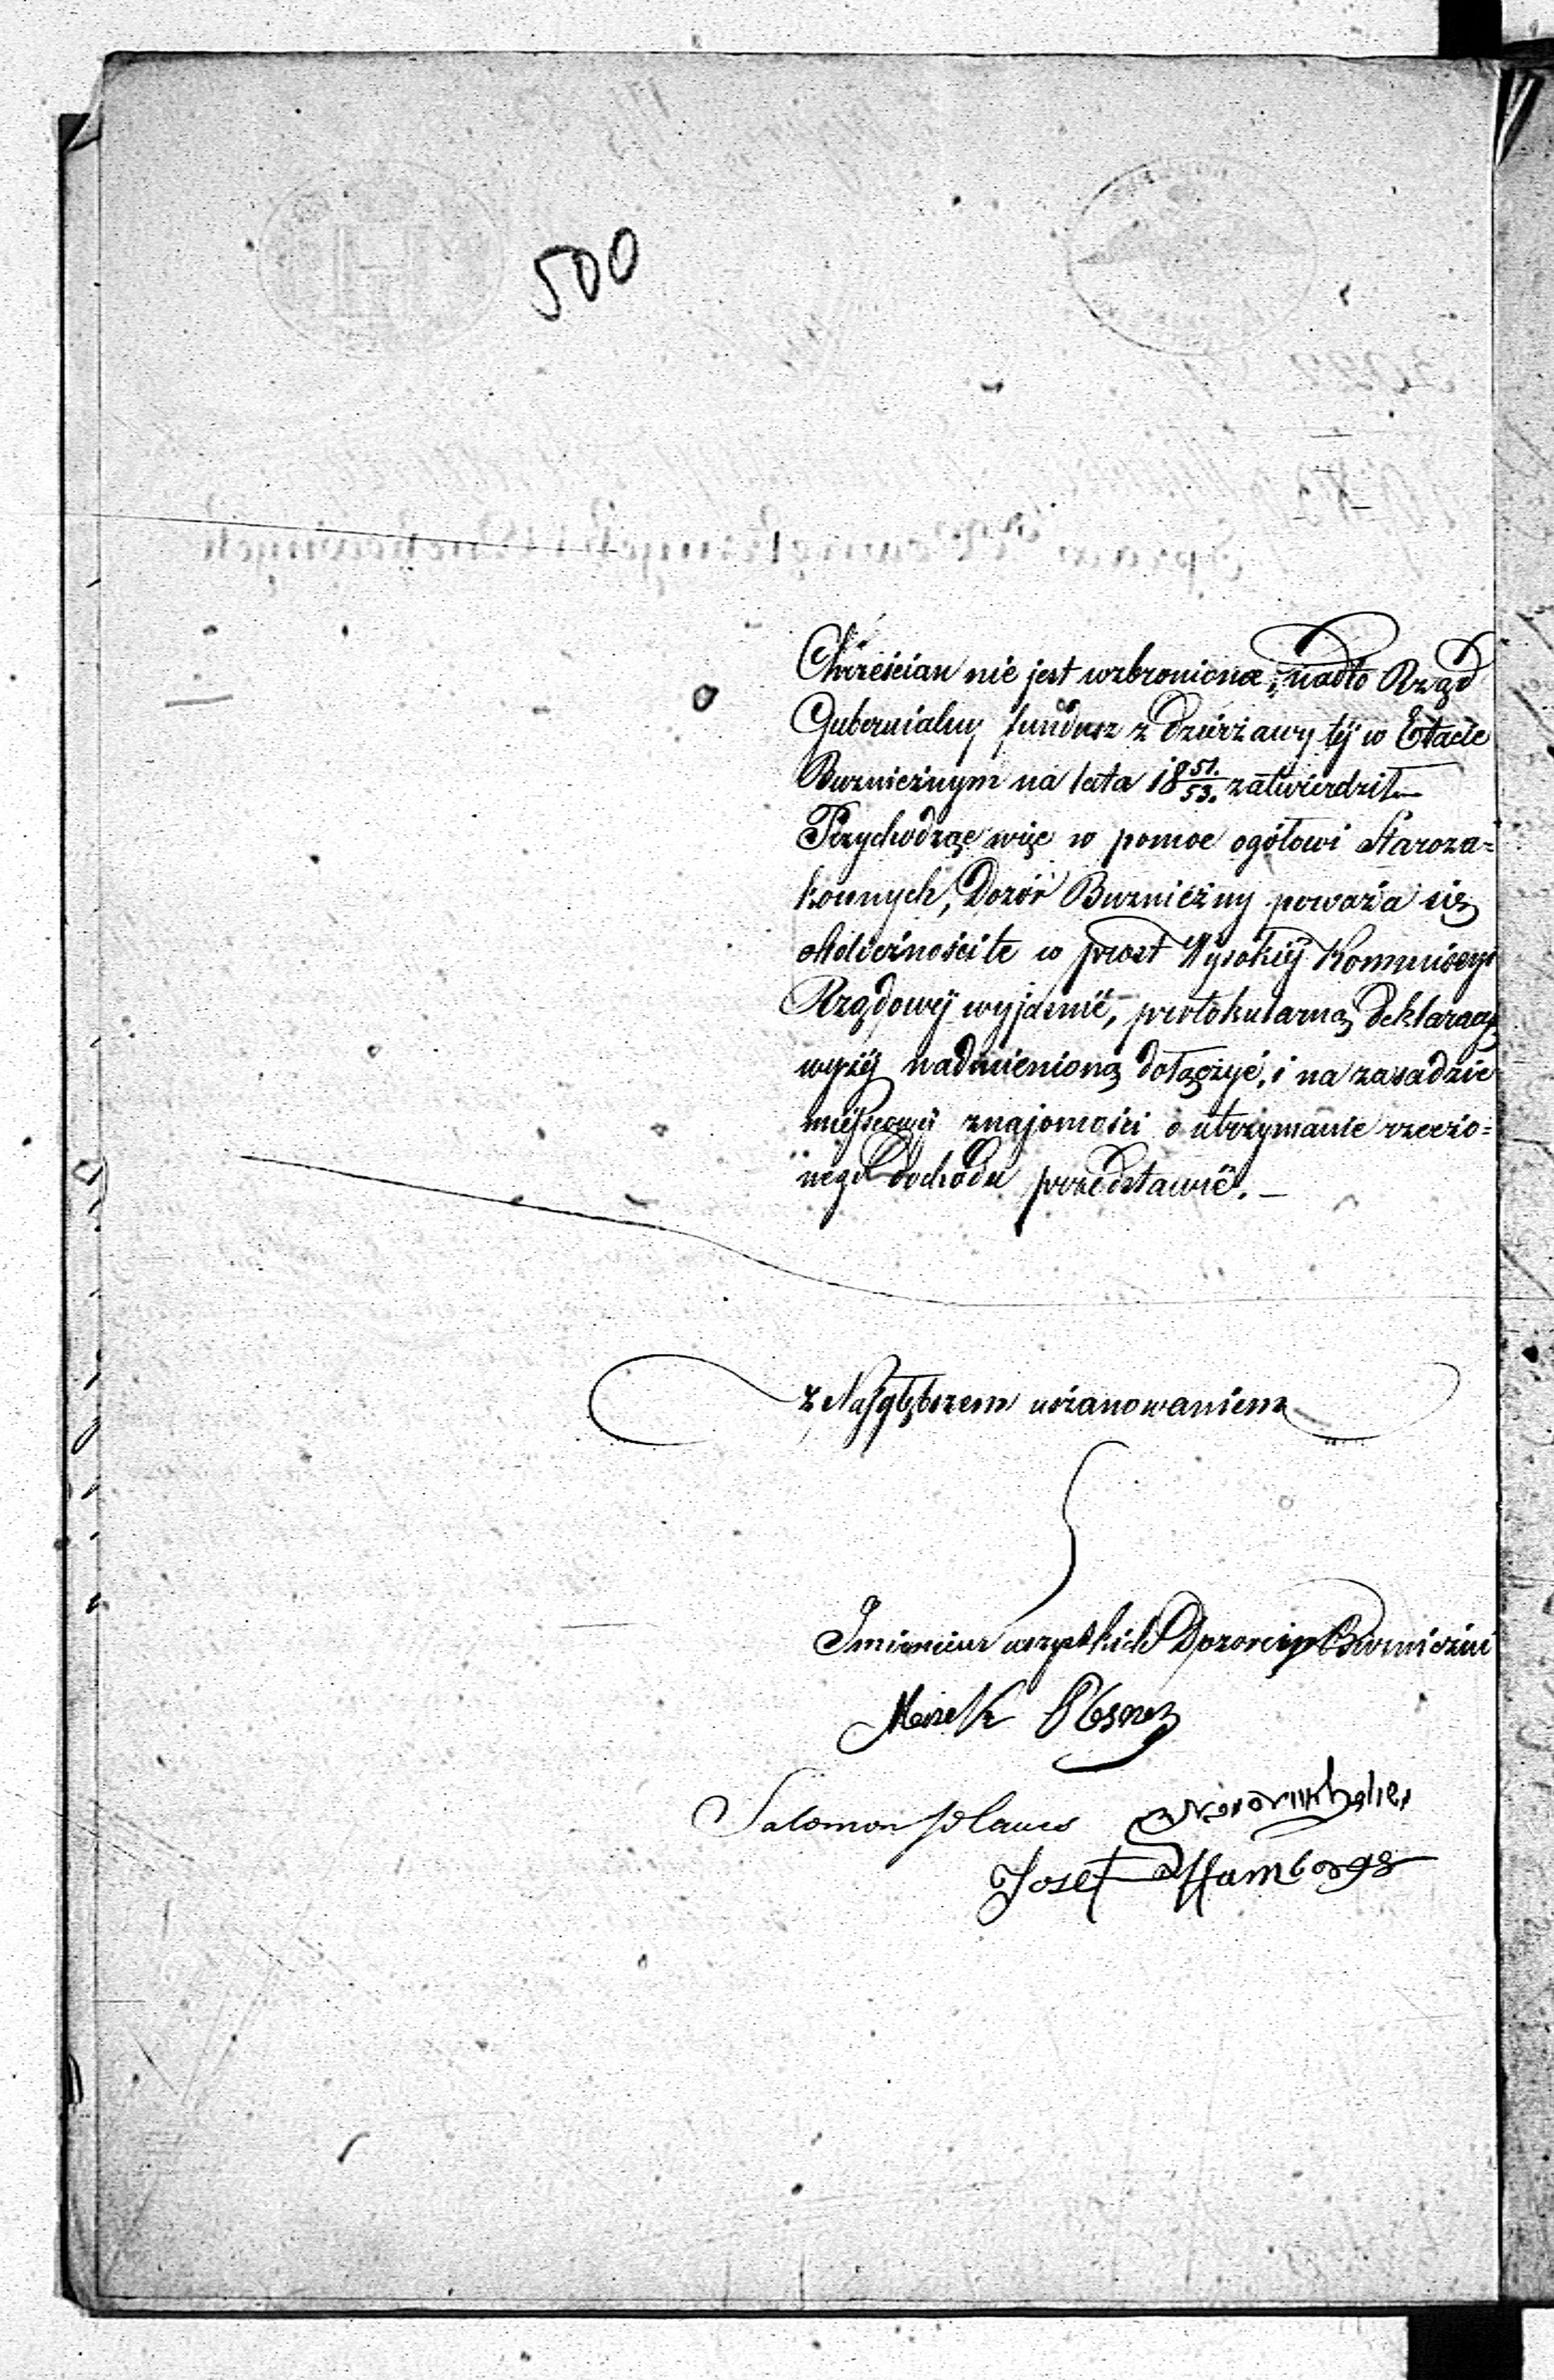 500
Chrześcian nie jest wzbronione, nadto Rząd
Gubernialny fundusz z dzierżawy téj w Etacie
Bużnicznym na lata 18 51./53. zatwierdził—
Przychodząc więc w pomoc ogółowi Staroza=
konnych, Dozór Bużniczny poważa się
okoliczności te w prost Wysokiéj Kommissyi
Rządowéj wyjaśnić, protokularną deklaracyą
wyżéj nadmienioną dołączyć, i na zasadzie
miéjscowéj znajomości o utrzymanie rzeczo=
nego dochodu przedstawić. —
z Najgłębszem uszanowaniem
Imieniem wszystkich Dozorcy Bużniczni
Marek
Salomon
Josef Hamburger